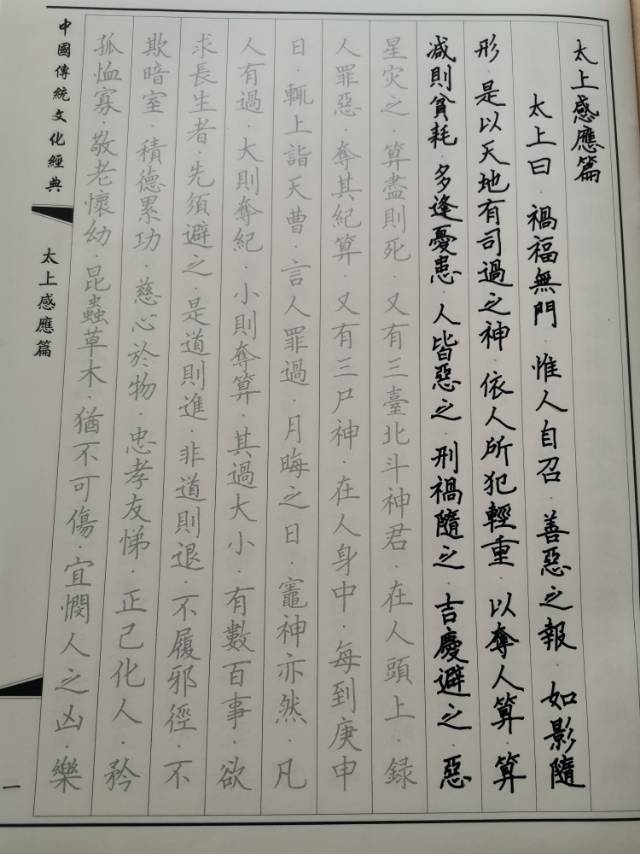 太上感應篇
太上曰·禍福無門·惟人自召·善惡之報·如影隨
形·是以天地有司過之神·依人所犯輕重·以奪人算·算
減則貧耗·多逢憂患·人皆惡之·刑禍隨之·吉慶避之·惡
星灾之·算盡則死·又有三臺北斗神君·在人頭上·録
人罪惡·奪其紀算·又有三尸神·在人身中·每到庚申
日·輒上詣天曹·言人罪過·月晦之日·竈神亦然·凡
人有過·大則奪紀·小則奪算·其過大小·有數百事·欲
求長生者·先須避之·是道則進·非道則退·不履邪徑·不
欺暗室·積德累功·慈心於物·忠孝友悌·正己化人·矜
孤恤寡·敬老懷幼·昆蟲草木·猶不可傷·宜憫人之凶·樂
中國傳統文化經典
太上感應篇
一